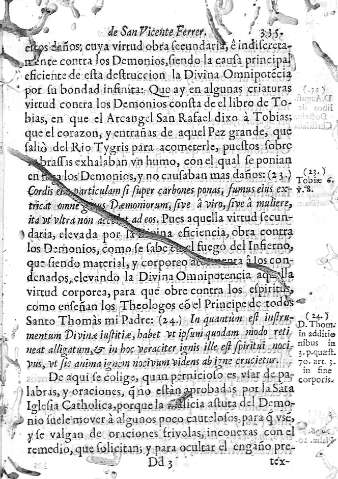 de San Vicente Ferrer. 335.
estos daños; cuya virtud obra secundaria, è indiscreta-
mente contra los Demonios, siendo la causa principal
eficiente de esta destruccion la Divina Omnipotẽcia
por su bondad infinita: Que ay en algunas criaturas
virtud contra los Demonios consta de el libro de To-
bias, en que el Arcangel San Rafael dixo à Tobias;
que el corazon, y entrañas de aquel Pez grande, que
saliò del Rio Tygris para acometerle, puestos sobre
abrassis exhalaban vn humo, con el qual se ponian
en los Demonios, y no causaban mas daños: (23.)
Cordis eius particulam si super carbones ponas, fumus eius ex-
tricat omne genus Dæmoniorum, sive à viro, sive à muliere,
ita vt vltra non accedat ad eos. Pues aquella virtud secun-
daria, elevada por la Divina eficiencia, obra contra
los Demonios, como se sabe el fuego del Infierno,
que siendo material, y corporeo à los con-
denados, elevando la Divina Omnipotencia aquella
virtud corporea, para que obre contra los espiritus,
como enseñan los Theologos cõ el Principe de todos
Santo Thomàs mi Padre: (24.) In quantùm est instru-
mentum Divinæ iustitiæ, habet vt ipsum quodam modo reti-
neat alligatum, & in hoc veraciter ignis ille est spiritui noci-
vus, vt sic anima ignem nocivum videns ab igne crucietur.
De aqui se colige, quan pernicioso es vsar de pa-
labras, y oraciones, q̃ no estàn aprobadas por la Sãta
Iglesia Catholica, porque la malicia astuta del Demo-
nio suele mover à algunos poco cautelosos, para q̃ vse,
y se valgan de oraciones frivolas, inconexas con el
remedio, que solicitan; y para ocultar el engaño pre-
Dd 3 tex-
(23.)
Tobiæ 6.
v. 8.
(24.)
D. Thom.
in additio
nibus in
3. p. quæst.
70. art. 3.
in fine
corporis.